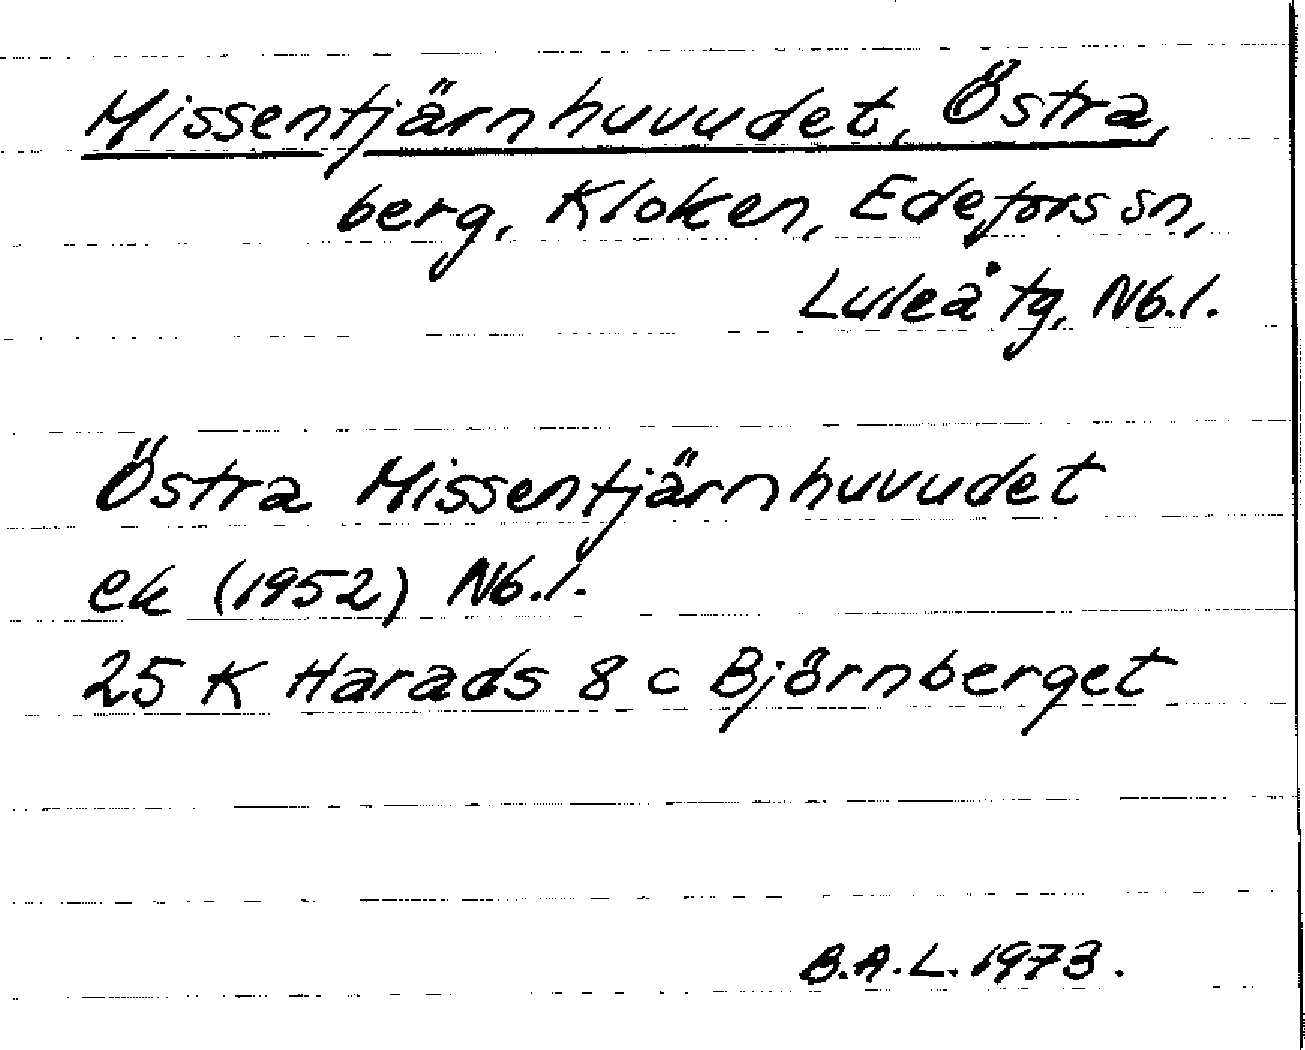 Missentjärnhuvudet, Östra,
berg, Kloken, Edefors sn,
Luleå tg, Nb.l.
Östra Missentjärnhuvudet
ek (1952) Nb.l.
25 K Harads 8 c Björnberget
B.A.L. 1973.